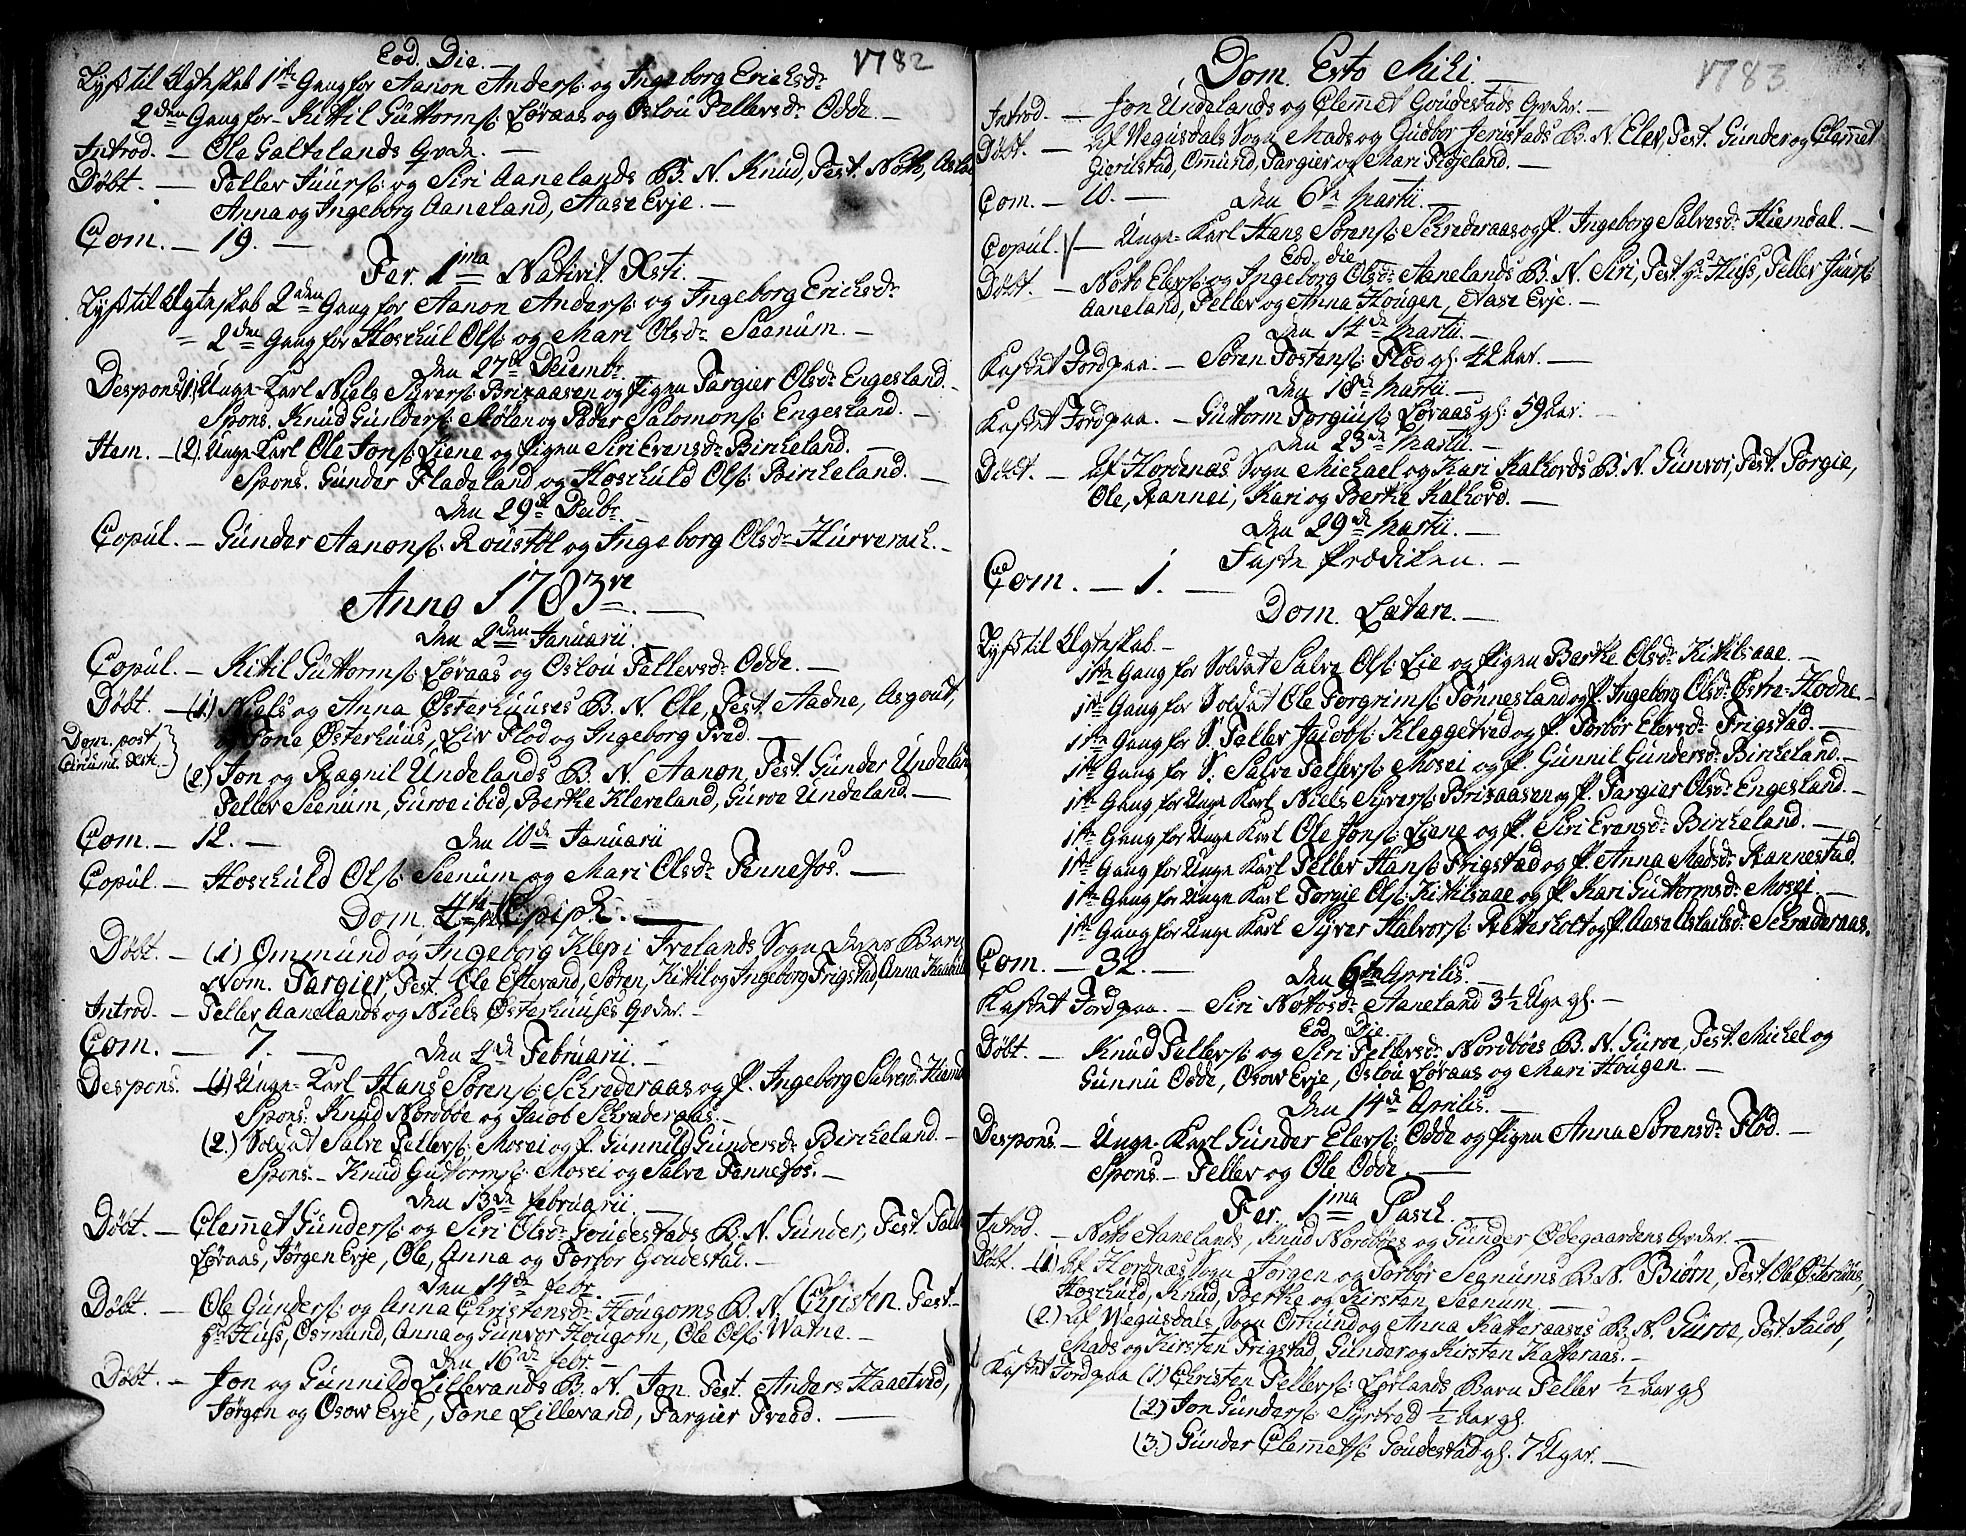 Eod. Die. 1782
Lyst til Ægteskab 1ste Gang for Aanon Anders: og Ingeborg Erichsdr
2den Gang for Kitil Guttorms: Løraas og Oslou Tellersdr Odde.
Introd. – Ole Galtelands Qvde.
Døbt. – Teller Juurs: og Siri Aanelands B. N. Knud, Test. Noto,
Anna og Ingeborg Aaneland, Aase Evje.
Com. – 19.
Fer. 1ma Nativit Xsti.
Lyst til Ægteskab 2den Gang for Aanon Anders: og Ingeborg Erichsdr
2den Gang for Hoschul Ols: og Mari Olsdr Seenum.
Den 27de Decembr.
Despons. (1.) Unge-Karl Niels Syvers: Brixaasen og Pigen Targier Olsdr Engesland.
Spons. Knud Gunders: Stølen og Peder Salomons: Engesland.
Item. – (2.) Unge Karl Ole Jons: Liene og Pigen Siri Evensdr Bircheland.
Spons. Gunder Fladeland og Hoschuld Ols: Bircheland.
Den 29de Decbr.
Copul. – Gunder Aanons: Roustøl og Ingeborg Olsdr Hurverach.
Anno 1783re
Den 2den Januarii
Copul. – Kitil Guttorms: Løraas og Oslou Tellersdr Odde.
Døbt. – (1.) Niels og Anna Østerhuuses B. N. Ole, Test. Aadne, Asgout,
og Tone Østerhuus, Liv Flod og Ingeborg Tved.
Dom. post
Circumc. Xsti
(2.) Jon og Ragnil Undelands B. N. Aanon, Test. Gunder Undeland
Teller Seenum, Guroe ibid, Berthe Kleveland, Guroe Undeland.
Com. – 12. – Den 10de Januarii
Copul. – Hoschuld Ols: Seenum og Mari Olsdr Tennefos.
Dom. Epiph.
Døbt. – (1) Ommund og Ingeborg Klep i Ivelands Sogn deres Barn
Nom. Targier, Test. Ole Eftevand, Søren, Kittil og Ingeborg Frigstad, Anna
Introd. – Teller Aanelands og Niels Østerhuuses Qvder.
Com. – 7. – Den 4de Februarii.
Despons. – (1) Unge-Karl Hans Sørens: Schrederaas og P. Ingeborg Salvesd:
Spons. Knud Nordbøe og Jacob Schrederaas.
(2.) Soldat Salve Tellers: Mosei og P. Gunnild Gundersdr Bircheland.
Spons. – Knud Guttorms: Mosei og Salve Tennefos.
Den 13de Februarii.
Døbt. – Clemmet Gunders: og Siri Olsdr Goudestads B. N. Gunder, Test.
Løraas, Jørgen Evje, Ole, Anna og Torbor Goudestad.
Den 14de Febr.
Døbt. – Ole Gunders: og Anna Christensdr Hougoms B. N. Christen. Test.
Hr Huss, Osmund, Anna og Gunvor Hougom, Ole Ols: Watne.
Den 16de Febr.
Døbt. – Jon og Gunnild Lillevands B. N. Jon. Test. Anders Haaetved,
Jørgen og Osow Evje, Tone Lillevand, Targier Tveed.
Dom. Esto Mihi. 1783
Introd. – Jon Undelands og Clemmet Goudestads Qvder.
Døbt. – Af Wegusdals Sogn Mads og Gudbor Jerustads B. N. Elev, Test. Gunder og Clemmet
Gierilstad, Ommund, Targier og Mari Fløjeland.
Com. – 10. – Den 6te Martii.
Copul. – Unge-Karl Hans Sørens: Schrederaas og P. Ingeborg Salvesdr Hiemdal.
Eod. die
Døbt. – Noto Elevs: og Ingeborg Olsdr Aanelands B. N. Siri, Test. Hr Huss, Teller Juurs:
Aaneland, Teller og Anna Hougen, Aase Evje.
Den 14de Martii.
Kastet Jord paa. – Søren Tostens: Floo gl: 42 Aar.
Den 18de Martii.
Kastet Jord paa. – Guttorm Torgius: Løraas gl: 59 Aar.
Den 23de Martii.
Døbt. – Af Hordenæs Sogn Michael og Kari Kalhords B. N. Gunvor, Test. Torgie,
Ole, Rannei, Kari og Berthe Kalhord.
Den 29de Martii.
Faste Prædiken.
Com. – 1.
Dom. Lætare.
Lyst til Ægteskab.
1ste Gang for Soldat Salve Ols: Lie og Pigen Berthe Olsdr Kittilsaae.
1ste Gang for Soldat Ole Torgrims: Tønnesland og P. Ingeborg Olsdr Østre-Hodne.
1ste Gang for S. Teller Jacobs: Kleggetved og P. Torbør Elevsdr Frigstad.
1ste Gang for S. Salve Tellers: Mosei og P. Gunnil Gundersdr Bircheland.
1ste Gang for Unge Karl Niels Syvers: Brixaasen og P. Targier Olsdr Engesland.
1ste Gang for Unge Karl Ole Jons: Liene og P. Siri Evensdr Bircheland.
1ste Gang for Unge Karl Teller Hans: Frigstad og P. Anna Madsdr Rannestad.
1ste Gang for Unge Karl Torgie Ols: Kittilsaae og P. Kari Guttormsdr Mosei.
1ste Gang for Unge Karl Syver Halvors: Retterholt og P. Aase Schrederaas.
Com. – 32.
Den 6te Aprilis.
Kastet Jord paa. – Siri Notosdr Aaneland 3½ Uge gl.
Eod. Die.
Døbt. – Knud Tellers: og Siri Tellersdr Nordbøes B. N. Guroe, Test. Michel og
Gunnu Odde, Osow Evje, Oslou Løraas og Mari Hougen.
Den 14de Aprilis.
Despons. – Unge-Karl Gunder Elevs: Odde og Pigen Anna Sørensdr Flod.
Spons. – Teller og Ole Odde.
Fer. 1ma Pasch.
Introd. – Noto Aanelands, Knud Nordbøes og Gunder Ødegaardens Qvder.
Døbt. – (1) Af Hordnæs Sogn Jørgen og Torbør Segnums B. N. Biørn, Test. Ole Østerhuus,
Hoschuld, Knud, Berthe og Kirsten Seenum.
(2.) Af Wegusdals Sogn Osmund og Anna Katteraases B. N. Guroe, Test. Jacob,
Mads og Kirsten Frigstad, Gunder og Kirsten Katteraas.
Kastet Jord paa (1) Christen Tellers: Lørlands Barn Teller ½ Aar gl
(2.) Jon Gunders: Syrtved ½ Aar gl.
(3.) Gunder Clemmets: Goudestad gl. 7 Uger.